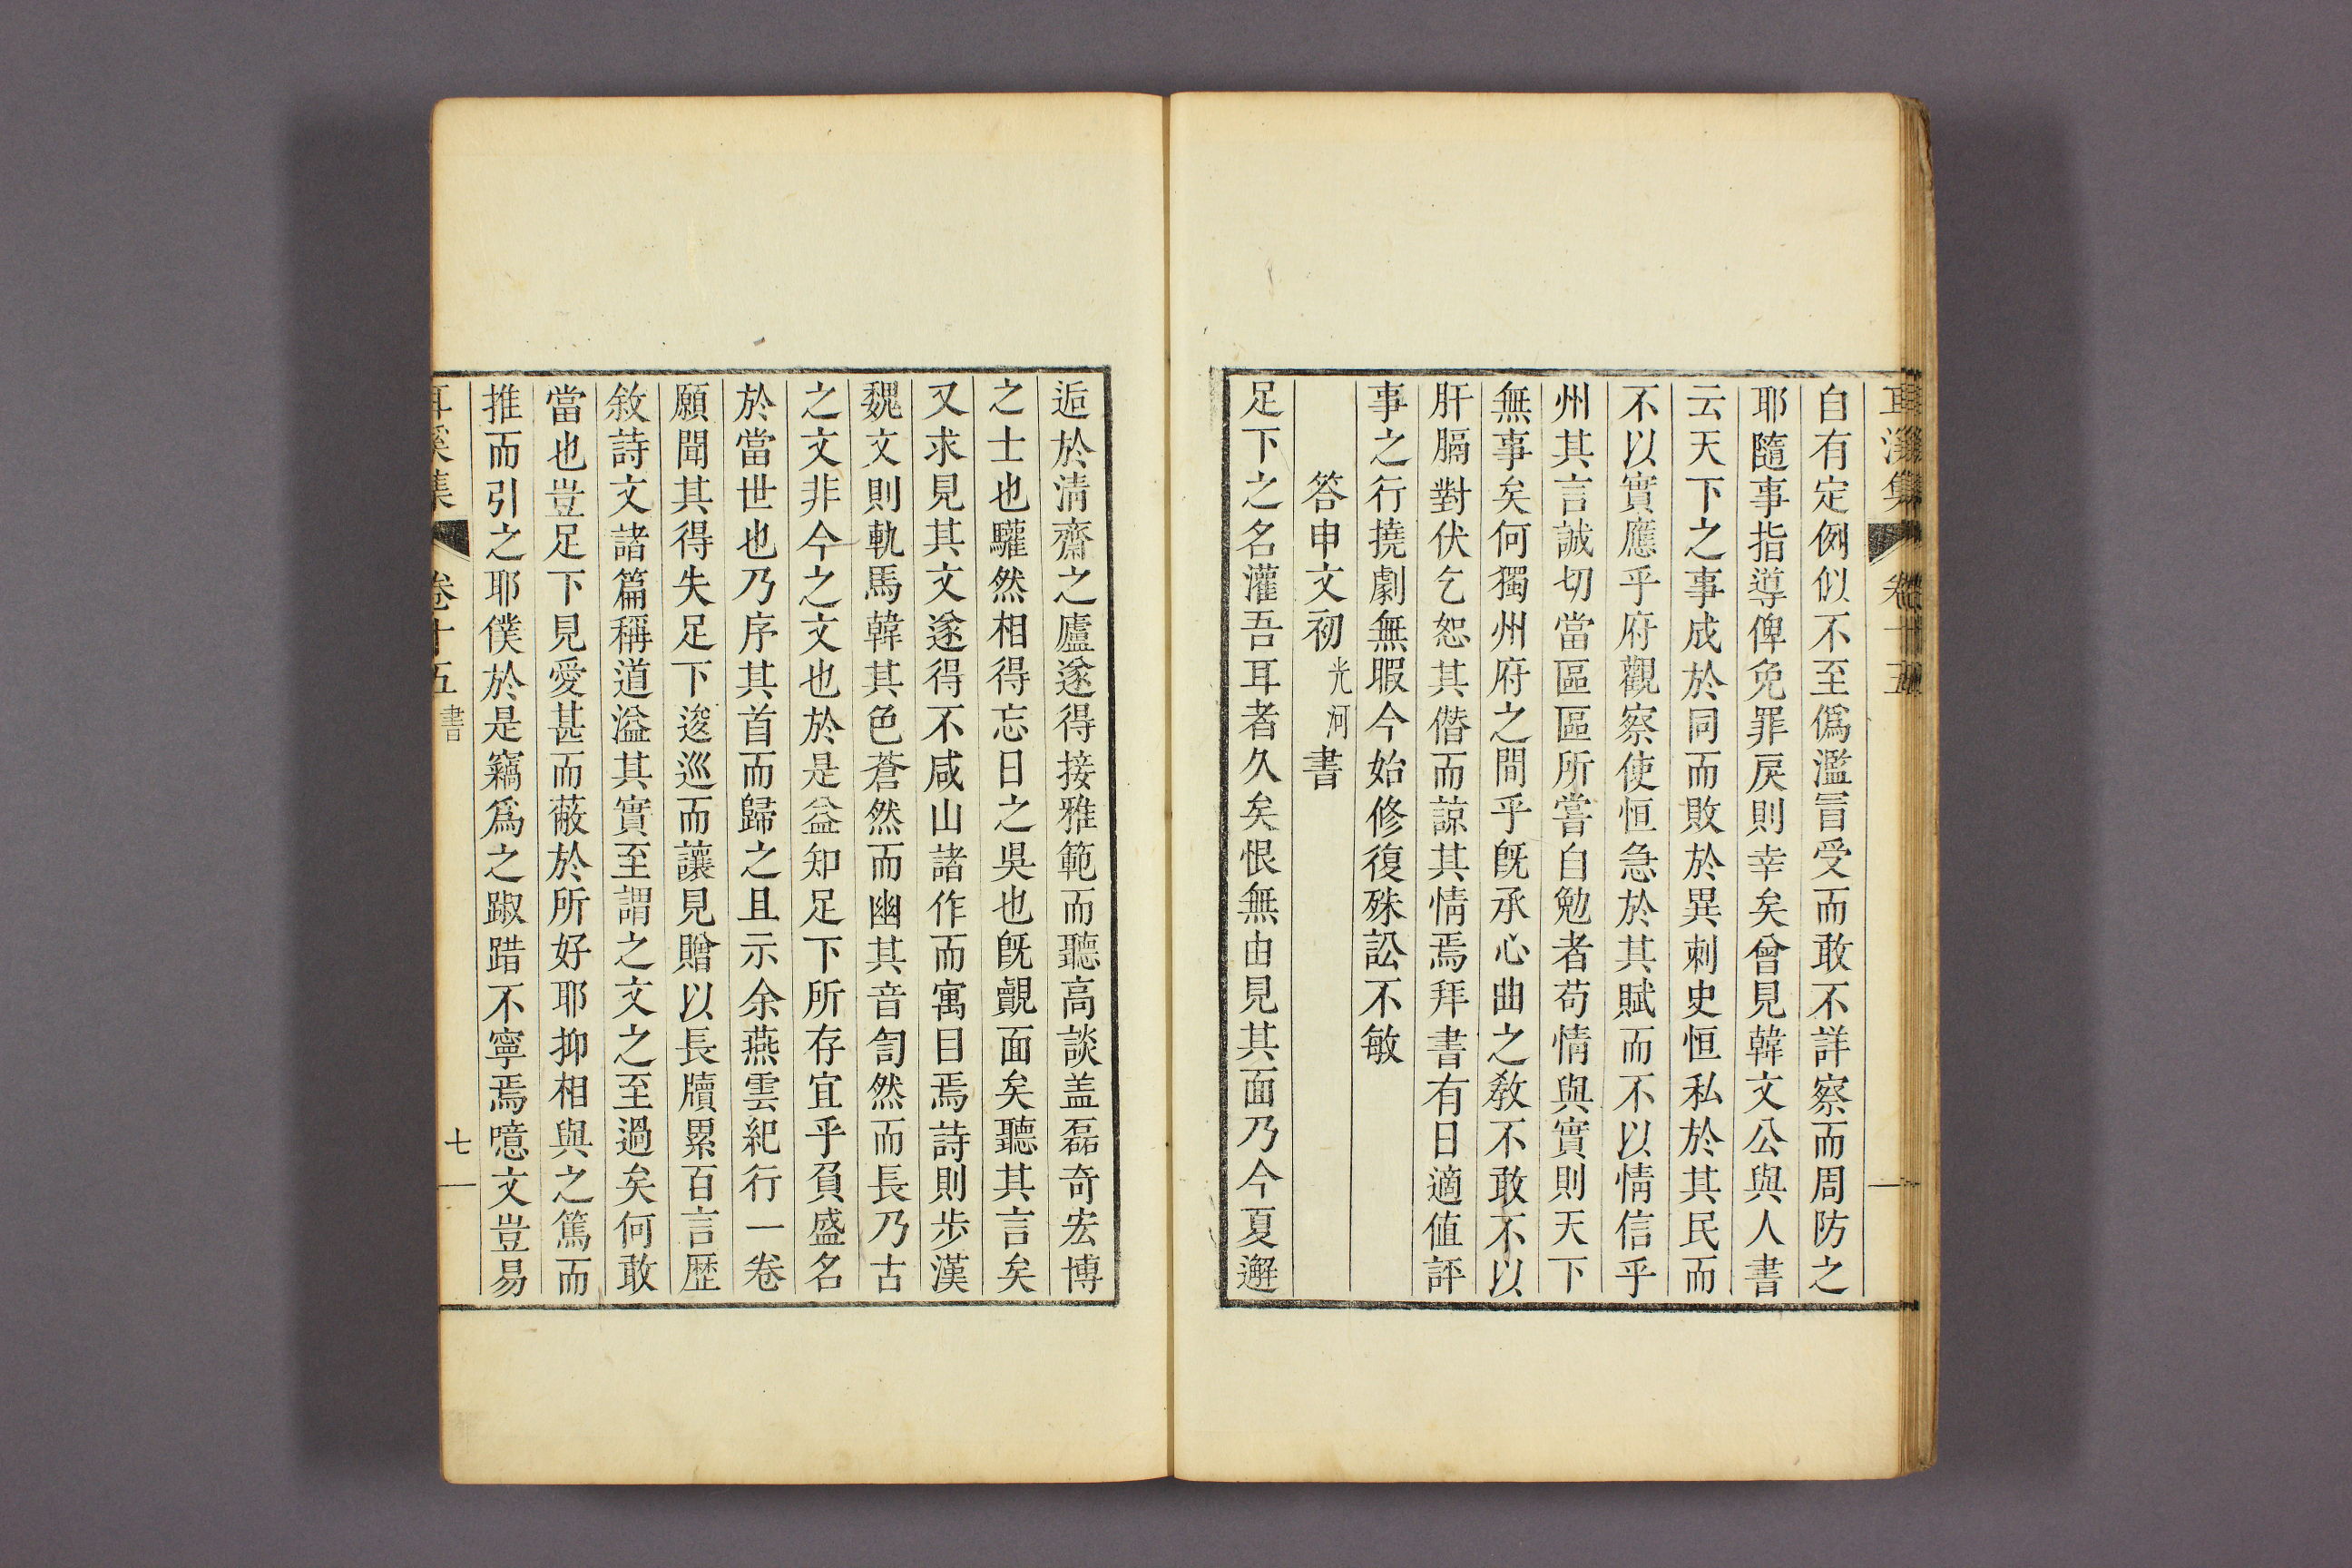 耳溪集 卷十五
自有定例似不至僞濫冒受而敢不詳察而周防之
耶隨事指導俾免罪戾則幸矣曾見韓文公與人書
云天下之事成於同而敗於異刺史恒私於其民而
不以實應乎府觀察使恒急於其賦而不以情信乎
州其言誠切當區區所嘗自勉者苟情與實則天下
無事矣何獨州府之間乎旣承心曲之敎不敢不以
肝膈對伏乞恕其僭而諒其情焉拜書有日適値評
事之行撓劇無暇今始修復殊訟不敏
答申文初光河書
足下之名灌吾耳者久矣恨無由見其面乃今夏邂
逅於淸齋之廬遂得接雅範而聽高談盖磊奇宏博
之士也驩然相得忘日之吳也旣覿面矣聽其言矣
又求見其文遂得不咸山諸作而寓目焉詩則步漢
魏文則軌馬韓其色蒼然而幽其音訇然而長乃古
之文非今之文也於是益知足下所存宜乎負盛名
於當世也乃序其首而歸之且示余燕雲紀行一卷
願聞其得失足下逡巡而讓見贈以長牘累百言歷
敘詩文諸篇稱道溢其實至謂之文之至過矣何敢
當也豈足下見愛甚而蔽於所好耶抑相與之篤而
推而引之耶僕於是竊爲之踧踖不寧焉噫文豈易
耳溪集 卷十五 書 七